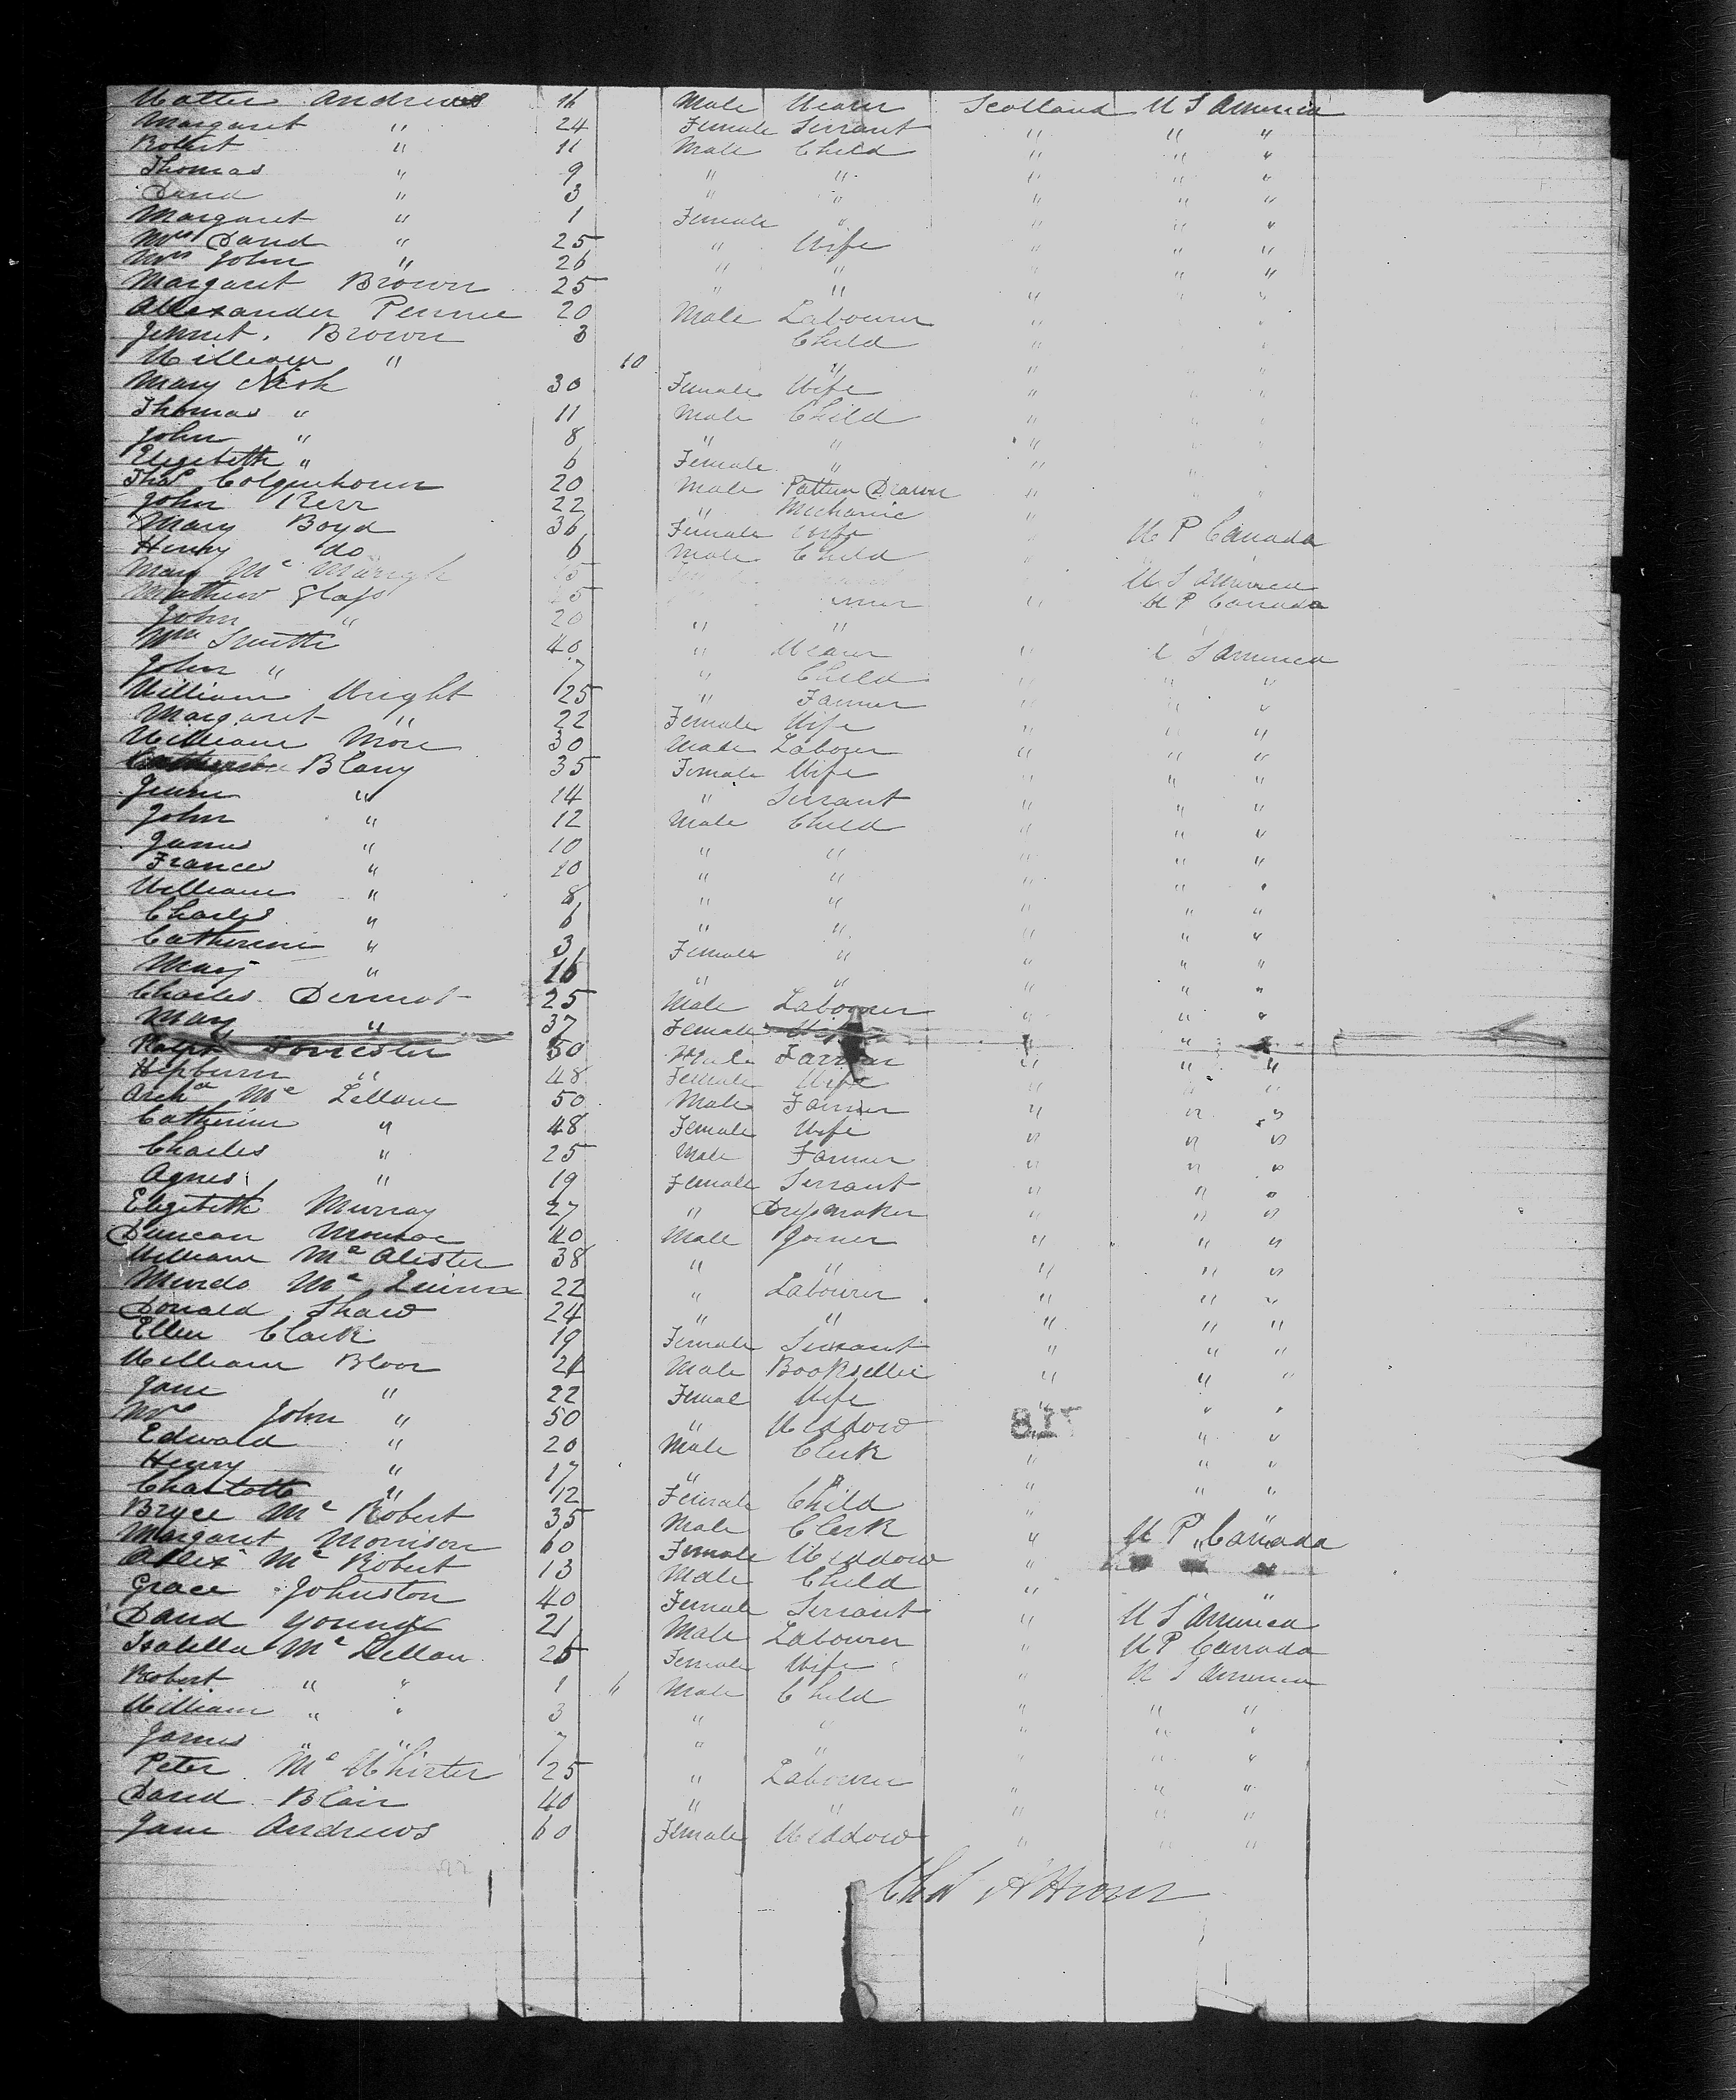 Walter Andrews 16 Male Weaver Scotland U S America
Margaret " 24 Female Servant " " "
Robert " 11 Male Child " " "
Thomas " 9 " " " " "
David " 3 " " " " "
Margaret " 1 Female " " " "
Mrs David " 25 " Wife " " "
Mrs John " 26 " " " " "
Margaret Brown 25 " " " "
Allexander Pennie 20 Male Labourer " "
Jennet Brown 3 Child " "
William " 10 " " "
Mary Nish 30 Female Wife " " "
Thomas " 11 Male Child " " "
John " 8 " " " " "
Elizebeth " 6 Female " " "
Thos Colquhoun 20 Male Pattern Drawer " " "
John Kerr 22 " Mechanic "
Mary Boyd 36 Female Wife " U P Canada
Henry do 6 Male Child " "
Mary Mc U S America
Mathew Glass " U P Canada
John " 20 " "
Wm Smith 40 " Weaver " U S America
John " 7 " Child " " "
William Wright 25 " Farmer " " "
Margaret " 22 Female Wife " " "
William More 30 Male Labourer " " "
Blany 35 Female Wife " " "
" 14 " Servant " " "
John " 12 Male Child " " "
James " 10 " " " " "
Frances " 10 " " " " "
William " 8 " " " " "
Charles " 6 " " " " "
Catherine " 3 Female " " " "
Mary " 16 " " " " "
Charles Dermot 25 Male Labourer " " "
Mary " 37 Female Wife " " "
Ralph Forrester 50 Male Farmer " " "
Hepburn " 48 Female Wife " " "
Archd Mc Lellane 50 Male Farmer " " "
Catherine " 48 Female Wife " " "
Charles " 25 Male Farmer " " "
Agnes " 19 Female Servant " " "
Elizebeth Murray 27 " Dressmaker " " "
Duncan Monroe 40 Male Joiner " " "
William Mc Alister 38 " " " " "
Murdo Mc 22 " Labourer " " "
Donald Shaw 24 " " " " "
Ellen Clark 19 Female Servant " " "
William Bloor 24 Male Bookseller " " "
Jane " 22 Female Wife " " "
Mrs John " 50 " Widdow " "
Edwald " 20 Male Clerk " " "
Henry " 17 " " " " "
Charlotte " 12 Female Child " " "
Bryce Mc Robert 35 Male Clerk " U P Canada
Margaret Morrison 60 Female Widdow "
Allex Mc Robert 13 Male Child " " "
Grace Johnston 40 Female Servant " U S America
David Young 21 Male Labourer " U P Canada
Isabella Mc Lellan 25 Female Wife " U S America
Robert " " 1 6 Male Child " " "
William " " 3 " " " " "
James " " 7 " " " " "
Peter Mc Whirter 25 " Labourer " " "
David Blair 40 " " " " "
Jane Andrews 60 Female Widdow " " "
Chas